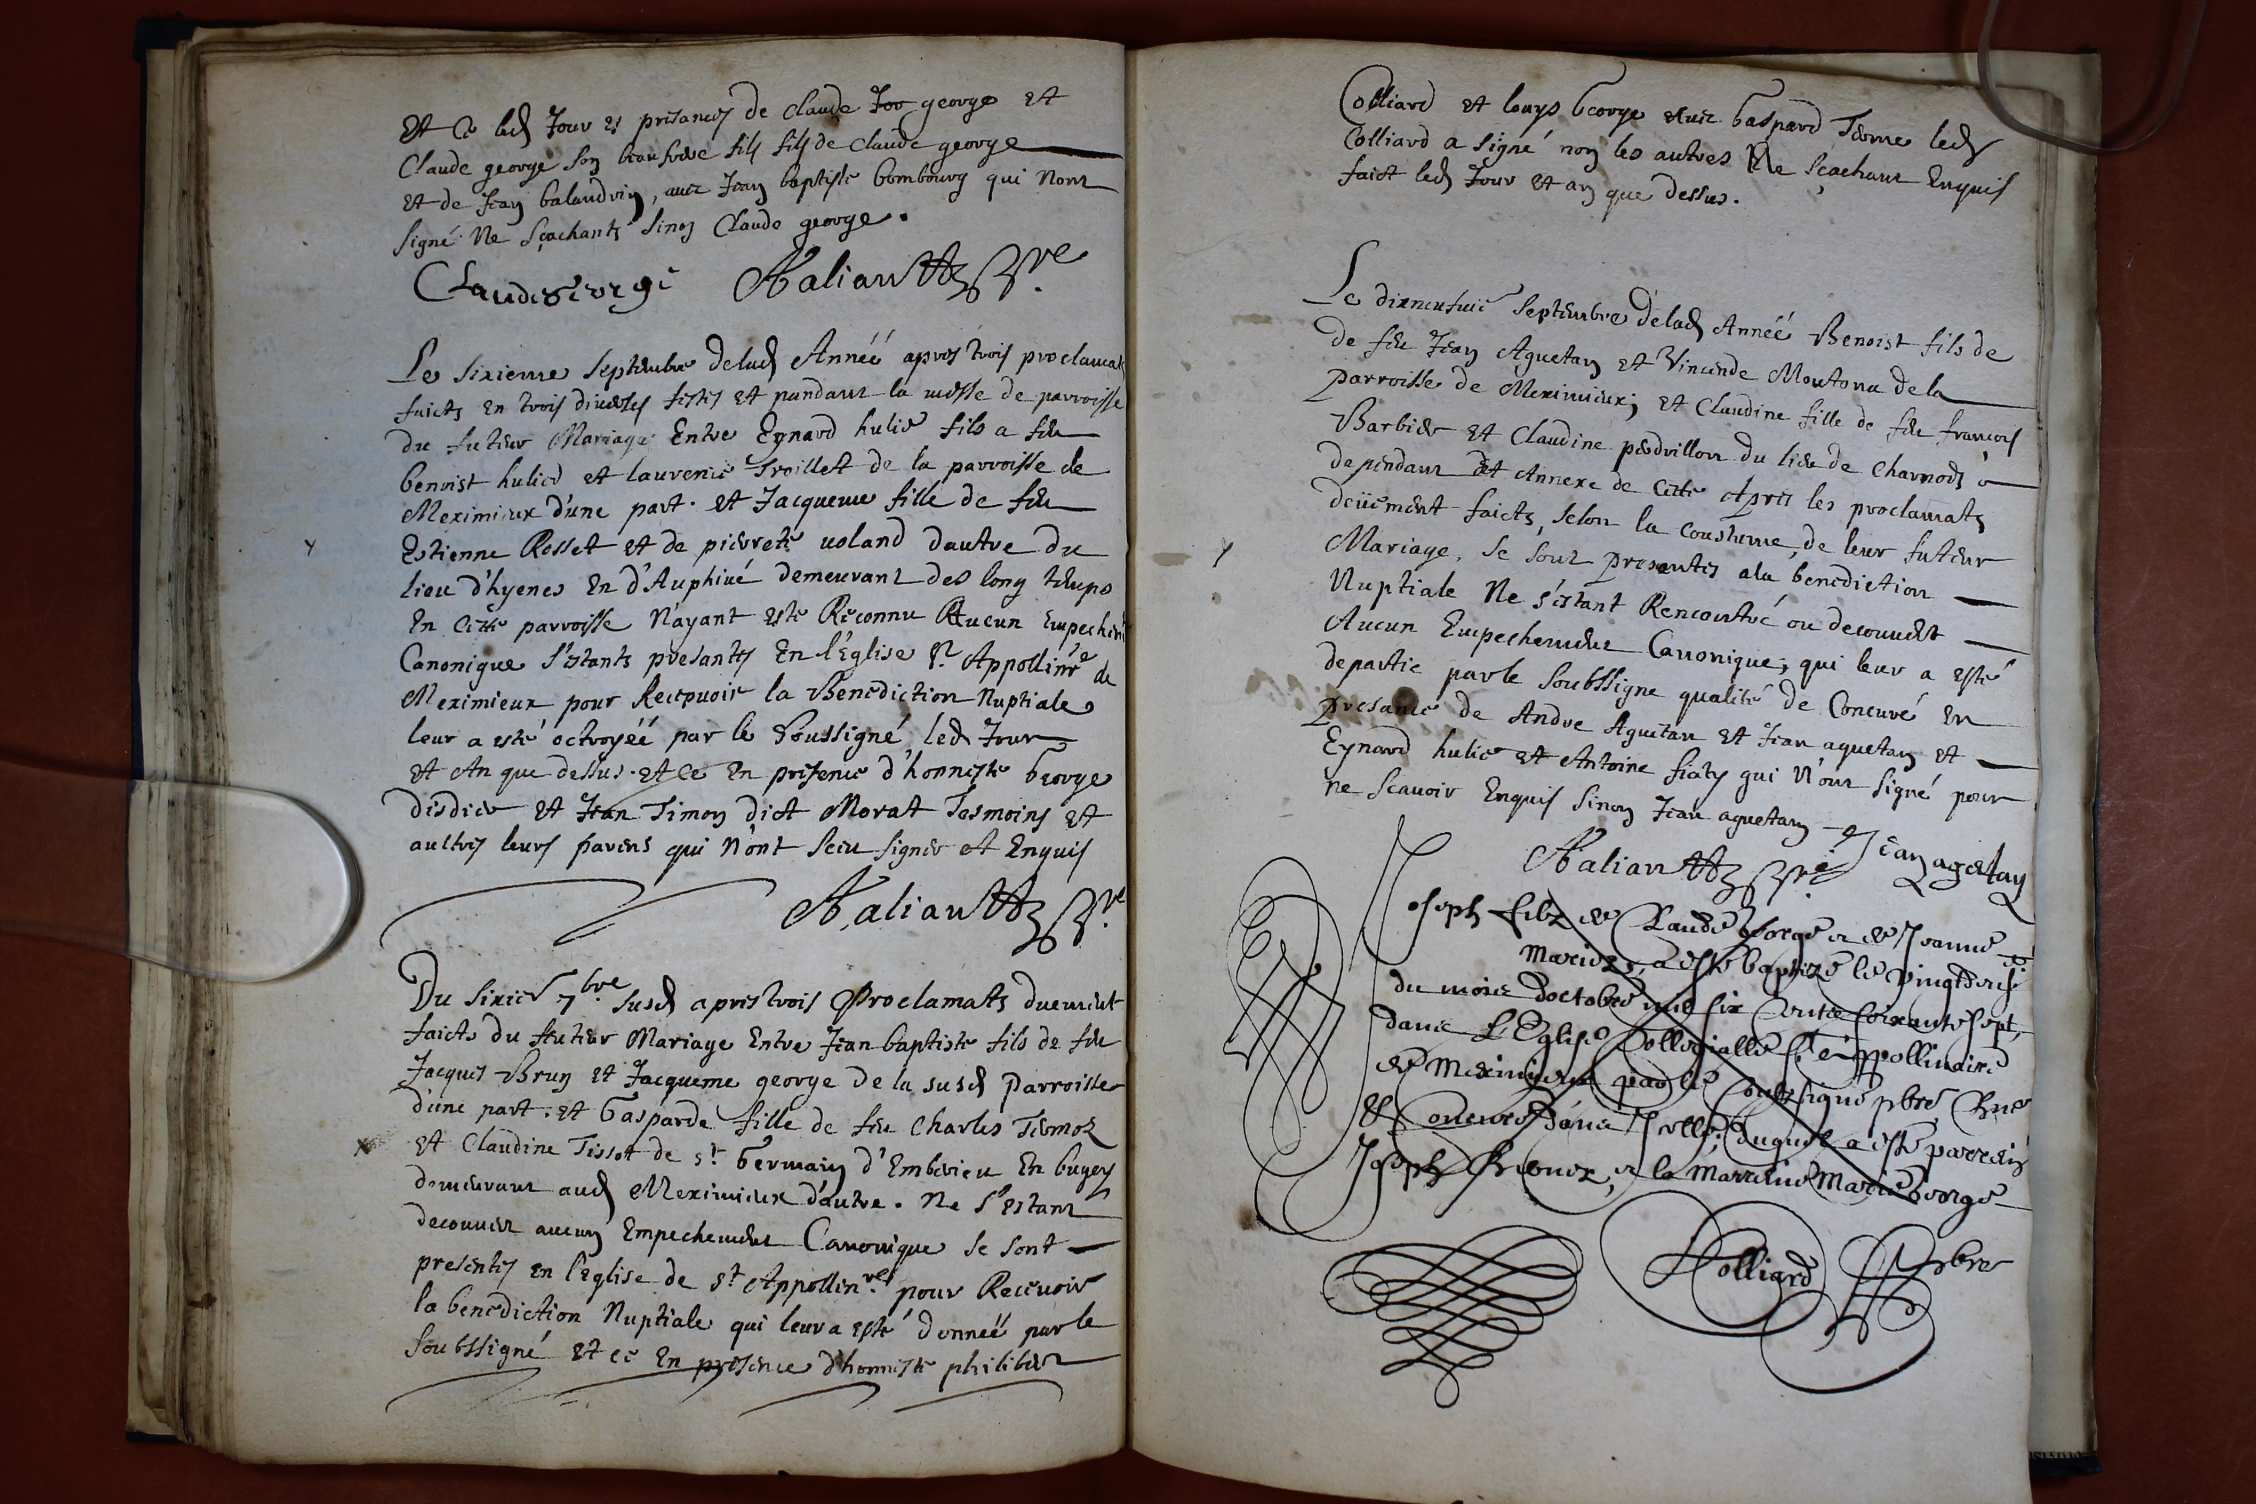 Et ce led Jour es presances de Claude george et
Claude george son beaufrere fils de Claude george
et de Jean balandrin, avec Jean baptiste bombourg qui nont
signé Ne sçachants sinon Claude george.
Claude george Aaliantz pbre
Le sixieme septembre delad Année apres trois proclamats
faicts en trois diverses festes et pandant la messe de parroisse
du futeur Mariage Entre Eynard hulie fils a feu
benoist hulier et laurence Troillet de la parroisse de
Meximieux d'une part. et Jacqueme fille de feu
Estienne Rosset et de pierrete voland dautre du
lieu d'hyenes en d'Auphiné demeurant des long temps
En cette parroisse Nayant esté Reconnu Aucun Empechemt
Canonique s'estants presantes En l'Eglise St Appollinre de
Meximieux pour Recepvoir la Benediction Nuptiale
leur a esté octroyéé par le soussigné, led Jour
et An que dessus. et ce en presence d'honneste George
disdier et Jean Simon dict Morat Tesmoins et
aultres leurs parens qui n'ont sceu signer et Enquis
Aaliantz pbre
Du sixier 7bre susd apres trois Proclamats duement
faicts du futeur Mariage Entre Jean baptiste fils de feu
Jacques Brun et Jacqueme george de la susd Parroisse
d'une part. et Gasparde fille de feu Charles Termoz
et Claudine Tissot de St Germain d'Emberieu En bugey
demeurant aud Meximieux d'autre. Ne s'estant
decouvert aucun Empechement Canonique se sont
presentes en l'Eglise de St Appollinre pour Recevoir
la benediction Nuptiale qui leur a esté donnéé par le
soubssigné et ce en presence d'honneste philibert
Colliard et louys George avec Gaspard Terme led
Colliard a signé non les autres Ne sçachant Enquis
faict led Jour et an que dessus.
Le dixneufuie septembre delad Année Benoist fils de
de feu Jean Aguetan et Vincende Moutona de la
parroisse de Meximieux; et Claudine fille de feu françois
Barbier et Claudine perdrillon du lieu de Charnod
dependant et Annexe de cette Apres les proclamats
deüement faicts, selon la coustume, de leur futeur
Mariage, se sont presentes a la benediction
Nuptiale Ne s'estant Rencontré ou decouvert
Aucun Empechement Canonique, qui leur a esté
departie par le soubssigne qualité de Concuré en
presance de Andre Aguetan et Jean aguetan et
Eynard hulie et Antoine fiaty qui n'ont signé pour
ne scavoir Enquis sinon Jean aguetan
Aaliantz pbre Jean agetan
Joseph filz de Claude George et de Jeanne
Marie a esté baptizé le vingt
du mois doctobre mil six Cents soixante sept,
dans L'Eglise Collegialle St Appollinaire
de Meximieux par le soubsigné pbre Cure
& Concuré dans Icelle; duquel a esté parrain
Joseph et la Marraine Marie George
Colliard Pbre